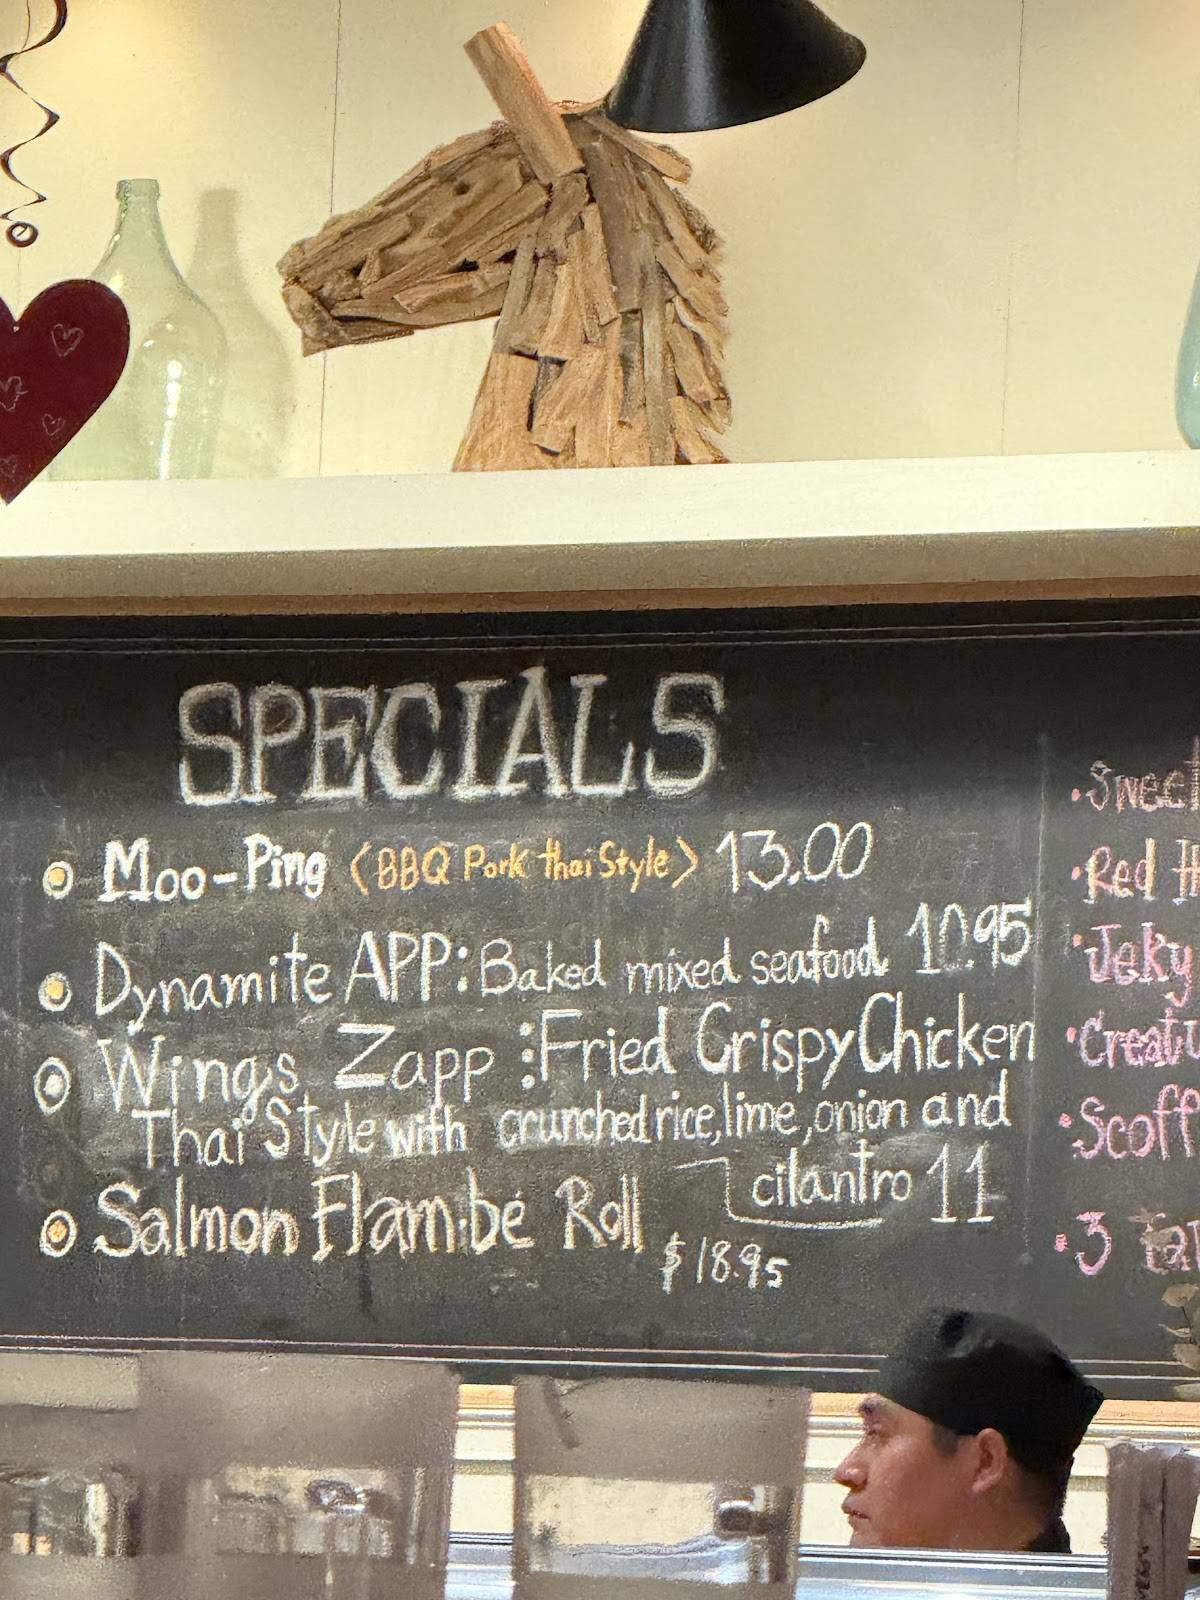 SPECIALS
Moo-Ping <BBQ Pork thai Style> 13.00
Dynamite APP: Baked mixed seafood 10.95
Wings Zapp : Fried Crispy Chicken
Thai Style with crunched rice, lime, onion and
cilantro 11
Salmon Flambé Roll
$18.95
Red
Jeky
3